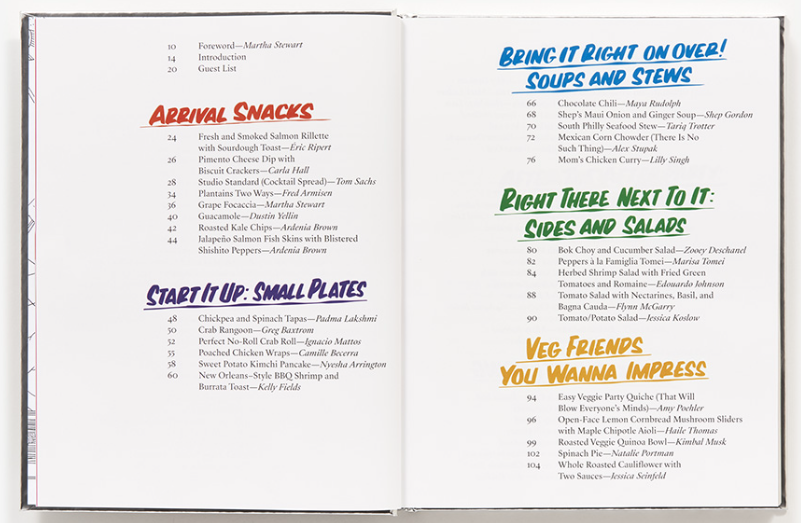 10 Foreword—Martha Stewart
14 Introduction
20 Guest List
ARRIVAL SNACKS
24 Fresh and Smoked Salmon Rillette
with Sourdough Toast—Éric Ripert
26 Pimento Cheese Dip with
Biscuit Crackers—Carla Hall
28 Studio Standard (Cocktail Spread)—Tom Sachs
34 Plantains Two Ways—Fred Armisen
36 Grape Focaccia—Martha Stewart
40 Guacamole—Dustin Yellin
42 Roasted Kale Chips—Ardenia Brown
44 Jalapeño Salmon Fish Skins with Blistered
Shishito Peppers—Ardenia Brown
START IT UP: SMALL PLATES
48 Chickpea and Spinach Tapas—Padma Lakshmi
50 Crab Rangoon—Greg Baxtrom
52 Perfect No-Roll Crab Roll—Ignacio Mattos
55 Poached Chicken Wraps—Camille Becerra
58 Sweet Potato Kimchi Pancake—Nyesha Arrington
60 New Orleans–Style BBQ Shrimp and
Burrata Toast—Kelly Fields
BRING IT RIGHT ON OVER!
SOUPS AND STEWS
66 Chocolate Chili—Maya Rudolph
68 Shep's Maui Onion and Ginger Soup—Shep Gordon
70 South Philly Seafood Stew—Tariq Trotter
72 Mexican Corn Chowder (There Is No
Such Thing)—Alex Stupak
76 Mom's Chicken Curry—Lilly Singh
RIGHT THERE NEXT TO IT:
SIDES AND SALADS
80 Bok Choy and Cucumber Salad—Zooey Deschanel
82 Peppers à la Famiglia Tomei—Marisa Tomei
84 Herbed Shrimp Salad with Fried Green
Tomatoes and Romaine—Edouardo Johnson
88 Tomato Salad with Nectarines, Basil, and
Bagna Cauda—Flynn McGarry
90 Tomato/Potato Salad—Jessica Koslow
VEG FRIENDS
YOU WANNA IMPRESS
94 Easy Veggie Party Quiche (That Will
Blow Everyone's Minds)—Amy Poehler
96 Open-Face Lemon Cornbread Mushroom Sliders
with Maple Chipotle Aioli—Haile Thomas
99 Roasted Veggie Quinoa Bowl—Kimbal Musk
102 Spinach Pie—Natalie Portman
104 Whole Roasted Cauliflower with
Two Sauces—Jessica Seinfeld